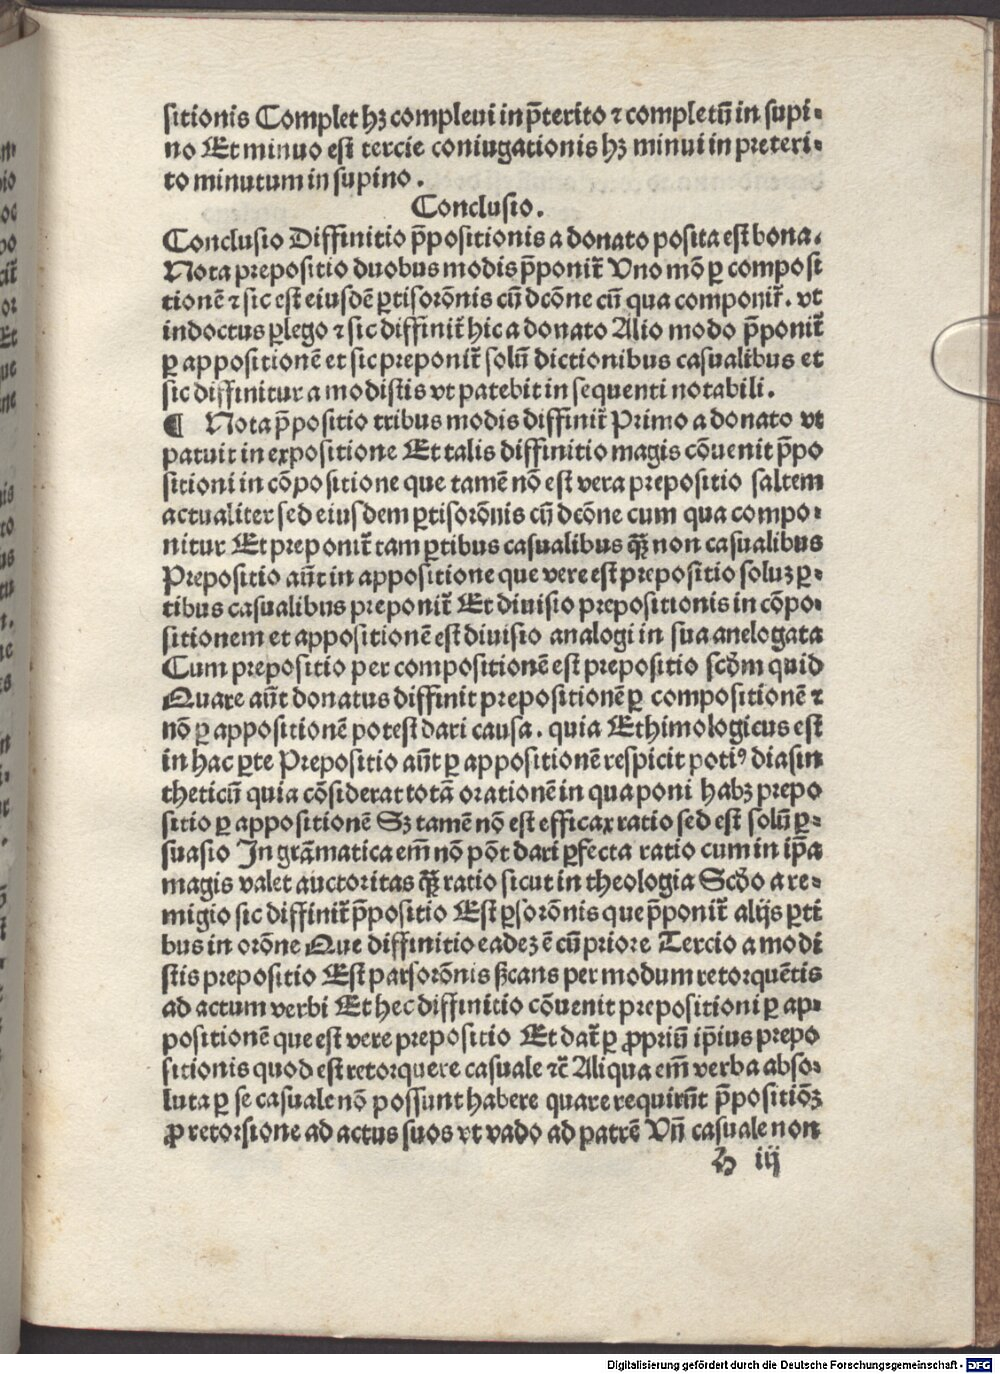 sitionis Complet hꝫ compleui in p̄terito ⁊ completū in supi-
no Et minuo est tercie coniugationis hꝫ minui in preteri-
to minutum in supino.
Conclusio.
Conclusio Diffinitio p̄positionis a donato posita est bona.
Nota prepositio duobus modis p̄ponit᷑ Uno mō ꝑ composi
tionē ⁊ sic est eiusdē ꝑtisorōnis cū dcōne cū qua componit᷑. vt
indoctus ꝑlego ⁊ sic diffinit᷑ hic a donato Alio modo p̄ponit᷑
ꝑ appositionē et sic preponit᷑ solū dictionibus casualibus et
sic diffinitur a modistis vt patebit in sequenti notabili.
¶ Nota p̄positio tribus modis diffinit᷑ Primo a donato vt
patuit in expositione Et talis diffinitio magis cōuenit p̄po
sitioni in cōpositione que tamē nō est vera prepositio saltem
actualiter sed eiusdem ꝑtisorōnis cū dcōne cum qua compo-
nitur Et preponit᷑ tam ꝑtibus casualibus qꝫ̄ non casualibus
Prepositio aūt in appositione que vere est prepositio soluꝫ ꝑ-
tibus casualibus preponit᷑ Et diuisio prepositionis in cōpo-
sitionem et appositionē est diuisio analogi in sua anelogata
Cum prepositio per compositionē est prepositio scḋm quid
Quare aūt donatus diffinit prepositionē ꝑ compositionē ⁊
nō ꝑ appositionē potest dari causa. quia Ethimologicus est
in hac ꝑte Prepositio aūt ꝑ appositionē respicit potiꝰ diasin
theticū quia cōsiderat totā orationē in qua poni habꝫ prepo
sitio ꝑ appositionē Sꝫ tamē nō est efficax ratio sed est solū ꝑ-
suasio In grāmatica em̄ nō pōt dari ꝑfecta ratio cum in ip̄a
magis valet auctoritas qꝫ̄ ratio sicut in theologia Scḋo a re-
migio sic diffinit᷑ p̄positio Est ꝑsorōnis que p̄ponit᷑ alijs ꝑti
bus in orōne Que diffinitio eadeꝫ ē cū priore Tercio a modi
stis prepositio Est parsorōnis ẞcans per modum retorquētis
ad actum verbi Et hec diffinitio cōuenit prepositioni ꝑ ap-
positionē que est vere prepositio Et dat᷑ ꝑ ꝓpriū ip̄ius prepo
sitionis quod est retorquere casuale ⁊c̄ Aliqua em̄ verba abso-
luta ꝑ se casuale nō possunt habere quare requirūt p̄positiōꝫ
ꝓ retorsione ad actus suos vt vado ad patrē Uñ casuale non
h iij
Digitalisierung gefördert durch die Deutsche Forschungsgemeinschaft - DFG